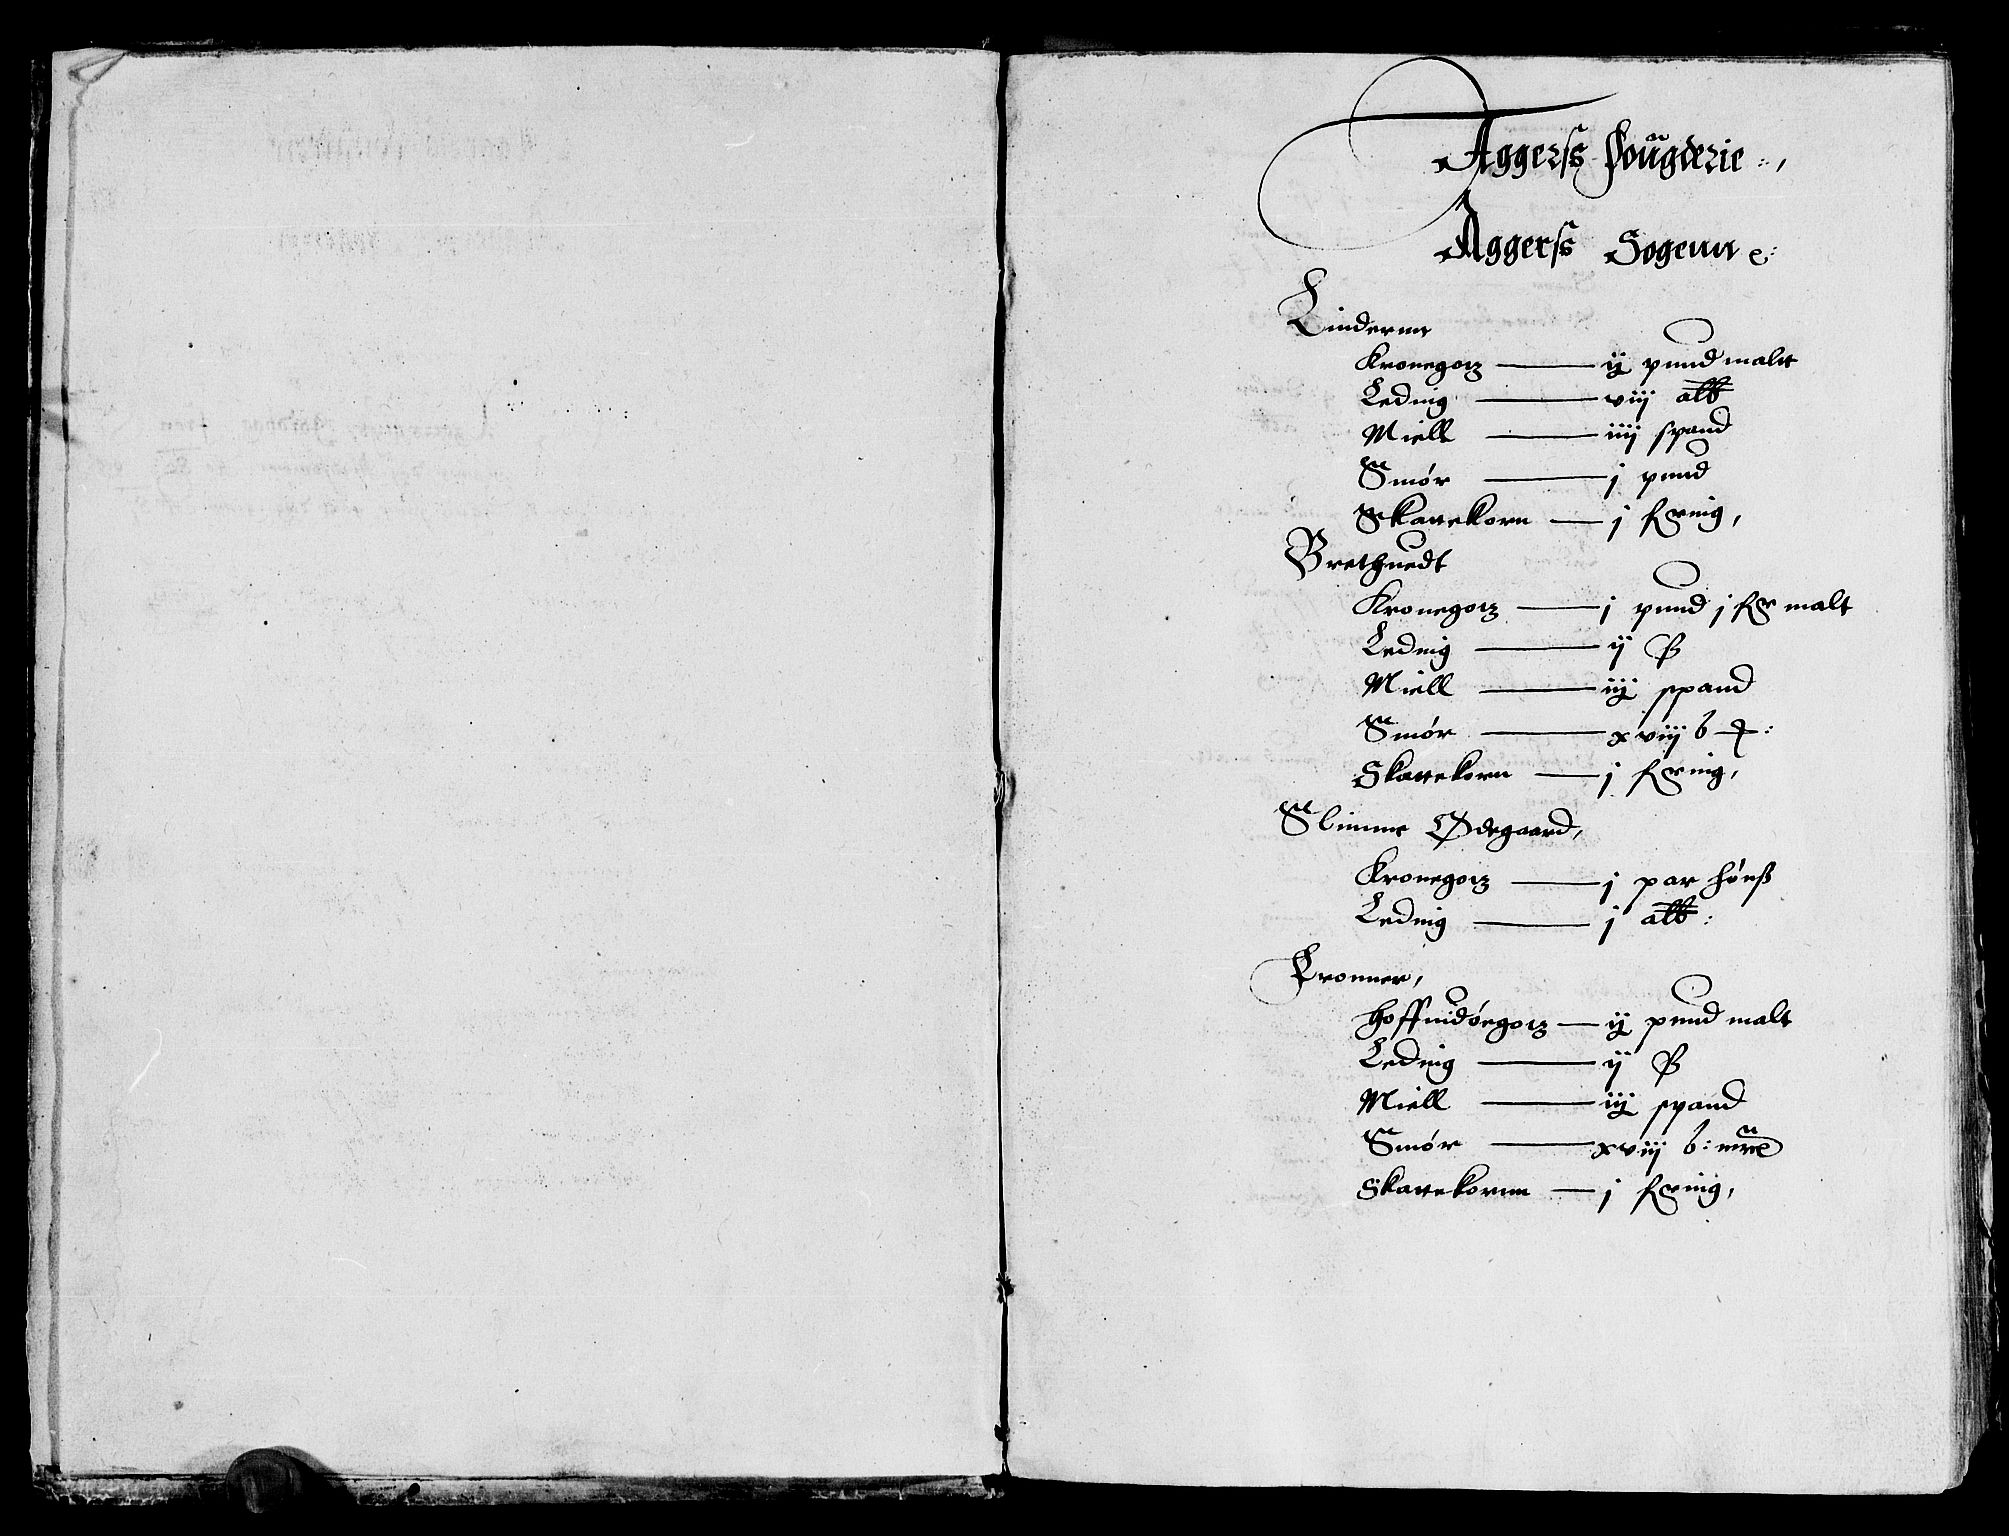 Aggerss Fougderie
Aggerss Sogenn
Linderne
Kronegotz — ij pund malt
Leding — viij alb
Miell — iiij spand
Smør — j pund
Skattekorn — j fering,
Brethuedt
Kronegotz — j pund j fer malt
Leding — ij ß
Miell — iij spand
Smør — xviij b
Skattekorn — j fering,
Slimme Ødegaard,
Kronegotz — j par hønß
Leding — j alb:
Hoffuidøegotz — ij pund malt
Leding — ij ß
Miell — iij spand
Smør — xviij b:
Skattekornn — j fering,